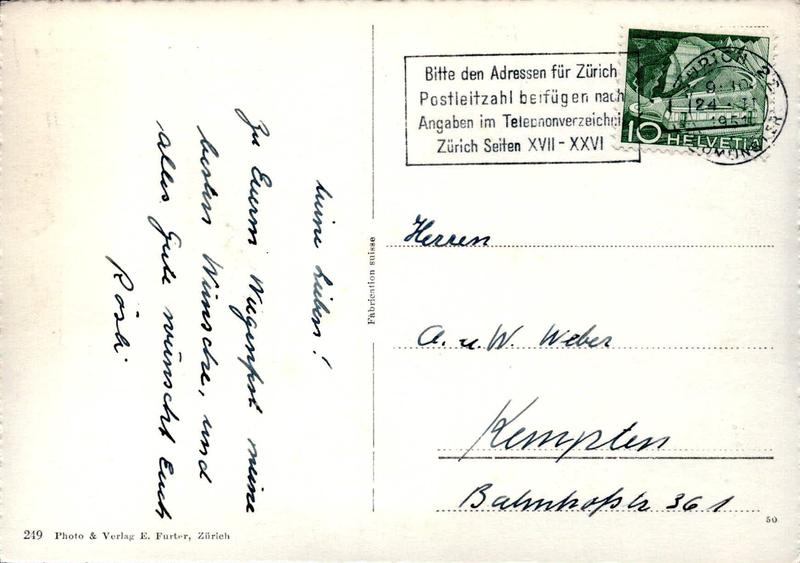 Meine Lieben!
Zu Eurem Wiegenfest meine
besten Wünsche, und
alles Gute wünscht Euch
Rösli
Fabrication suisse
249 Photo & Verlag E. Furter, Zürich
Bitte den Adressen für Zürich
Postleitzahl beifügen nach
Angaben im Telephonverzeichni
Zürich Seiten XVII-XXVI
ZÜRICH 22
24. II
1951
10 HELVETIA
Herren
A. u. W. Weber
Kempten
Bahnhofstr 361
50